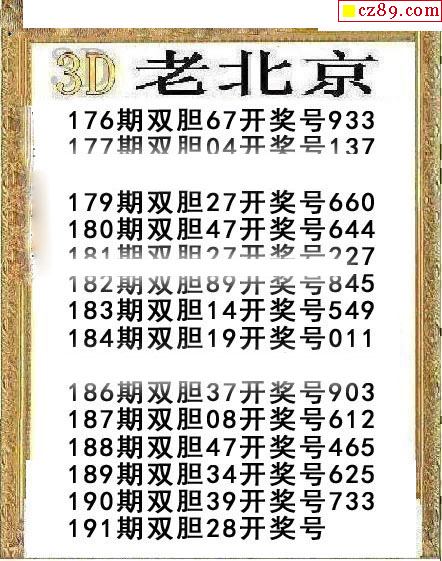 cz89.com
3D 老北京
176期双胆67开奖号933
177期双胆04开奖号137
179期双胆27开奖号660
180期双胆47开奖号644
181期双胆27开奖号227
182期双胆89开奖号845
183期双胆14开奖号549
184期双胆19开奖号011
186期双胆37开奖号903
187期双胆08开奖号612
188期双胆47开奖号465
189期双胆34开奖号625
190期双胆39开奖号733
191期双胆28开奖号